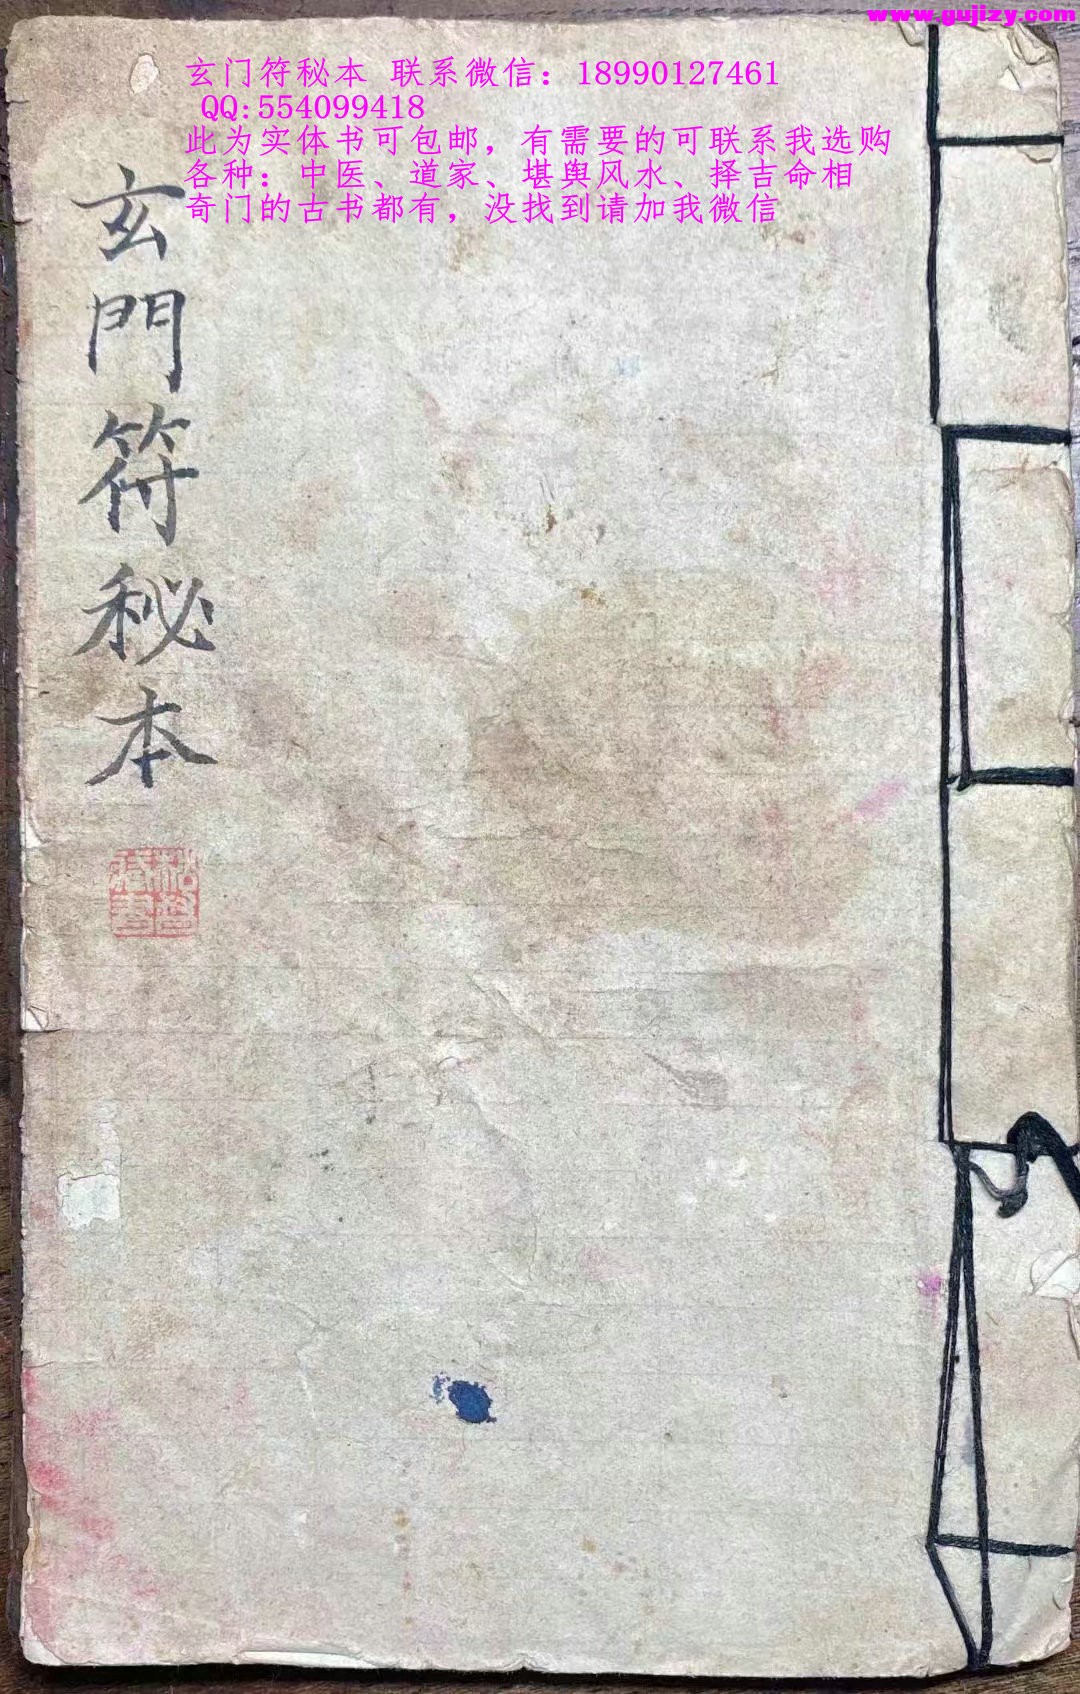 www.gujizy.com
玄门符秘本 联系微信：18990127461
QQ:554099418
此为实体书可包邮，有需要的可联系我选购
各种：中医、道家、堪舆风水、择吉命相
奇门的古书都有，没找到请加我微信
玄門符秘本